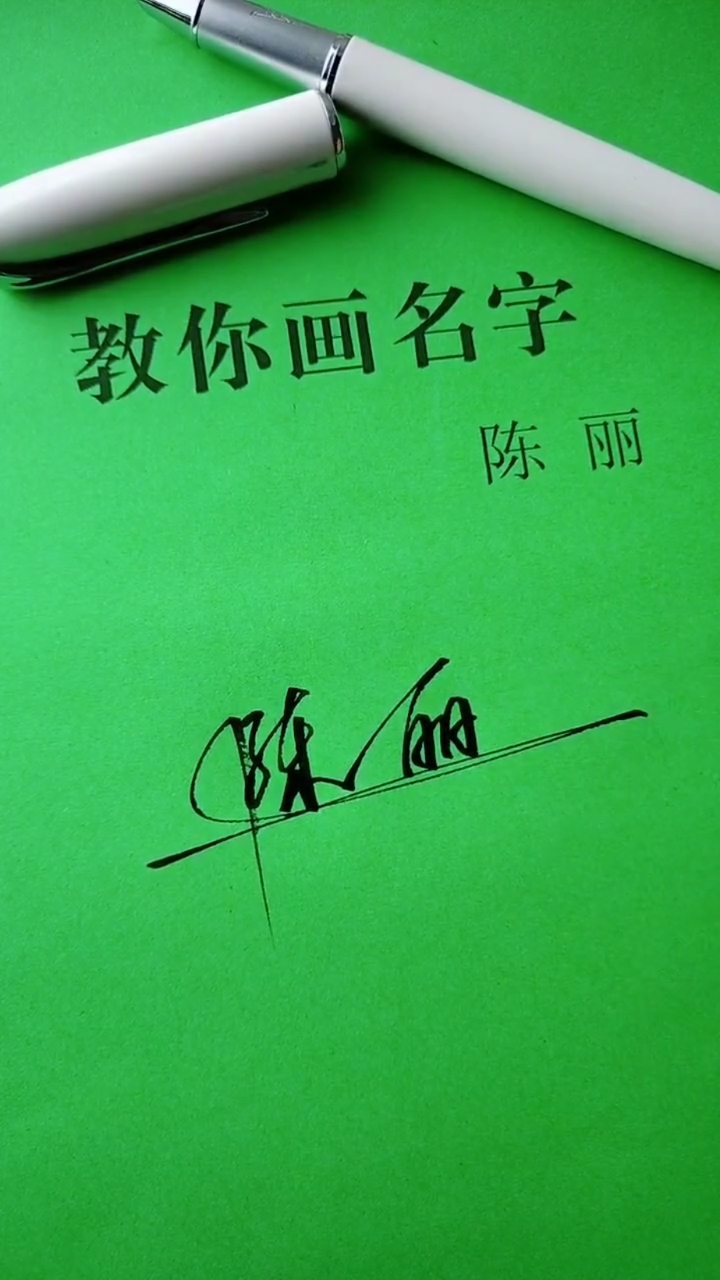 教你画名字
陈丽
陈丽